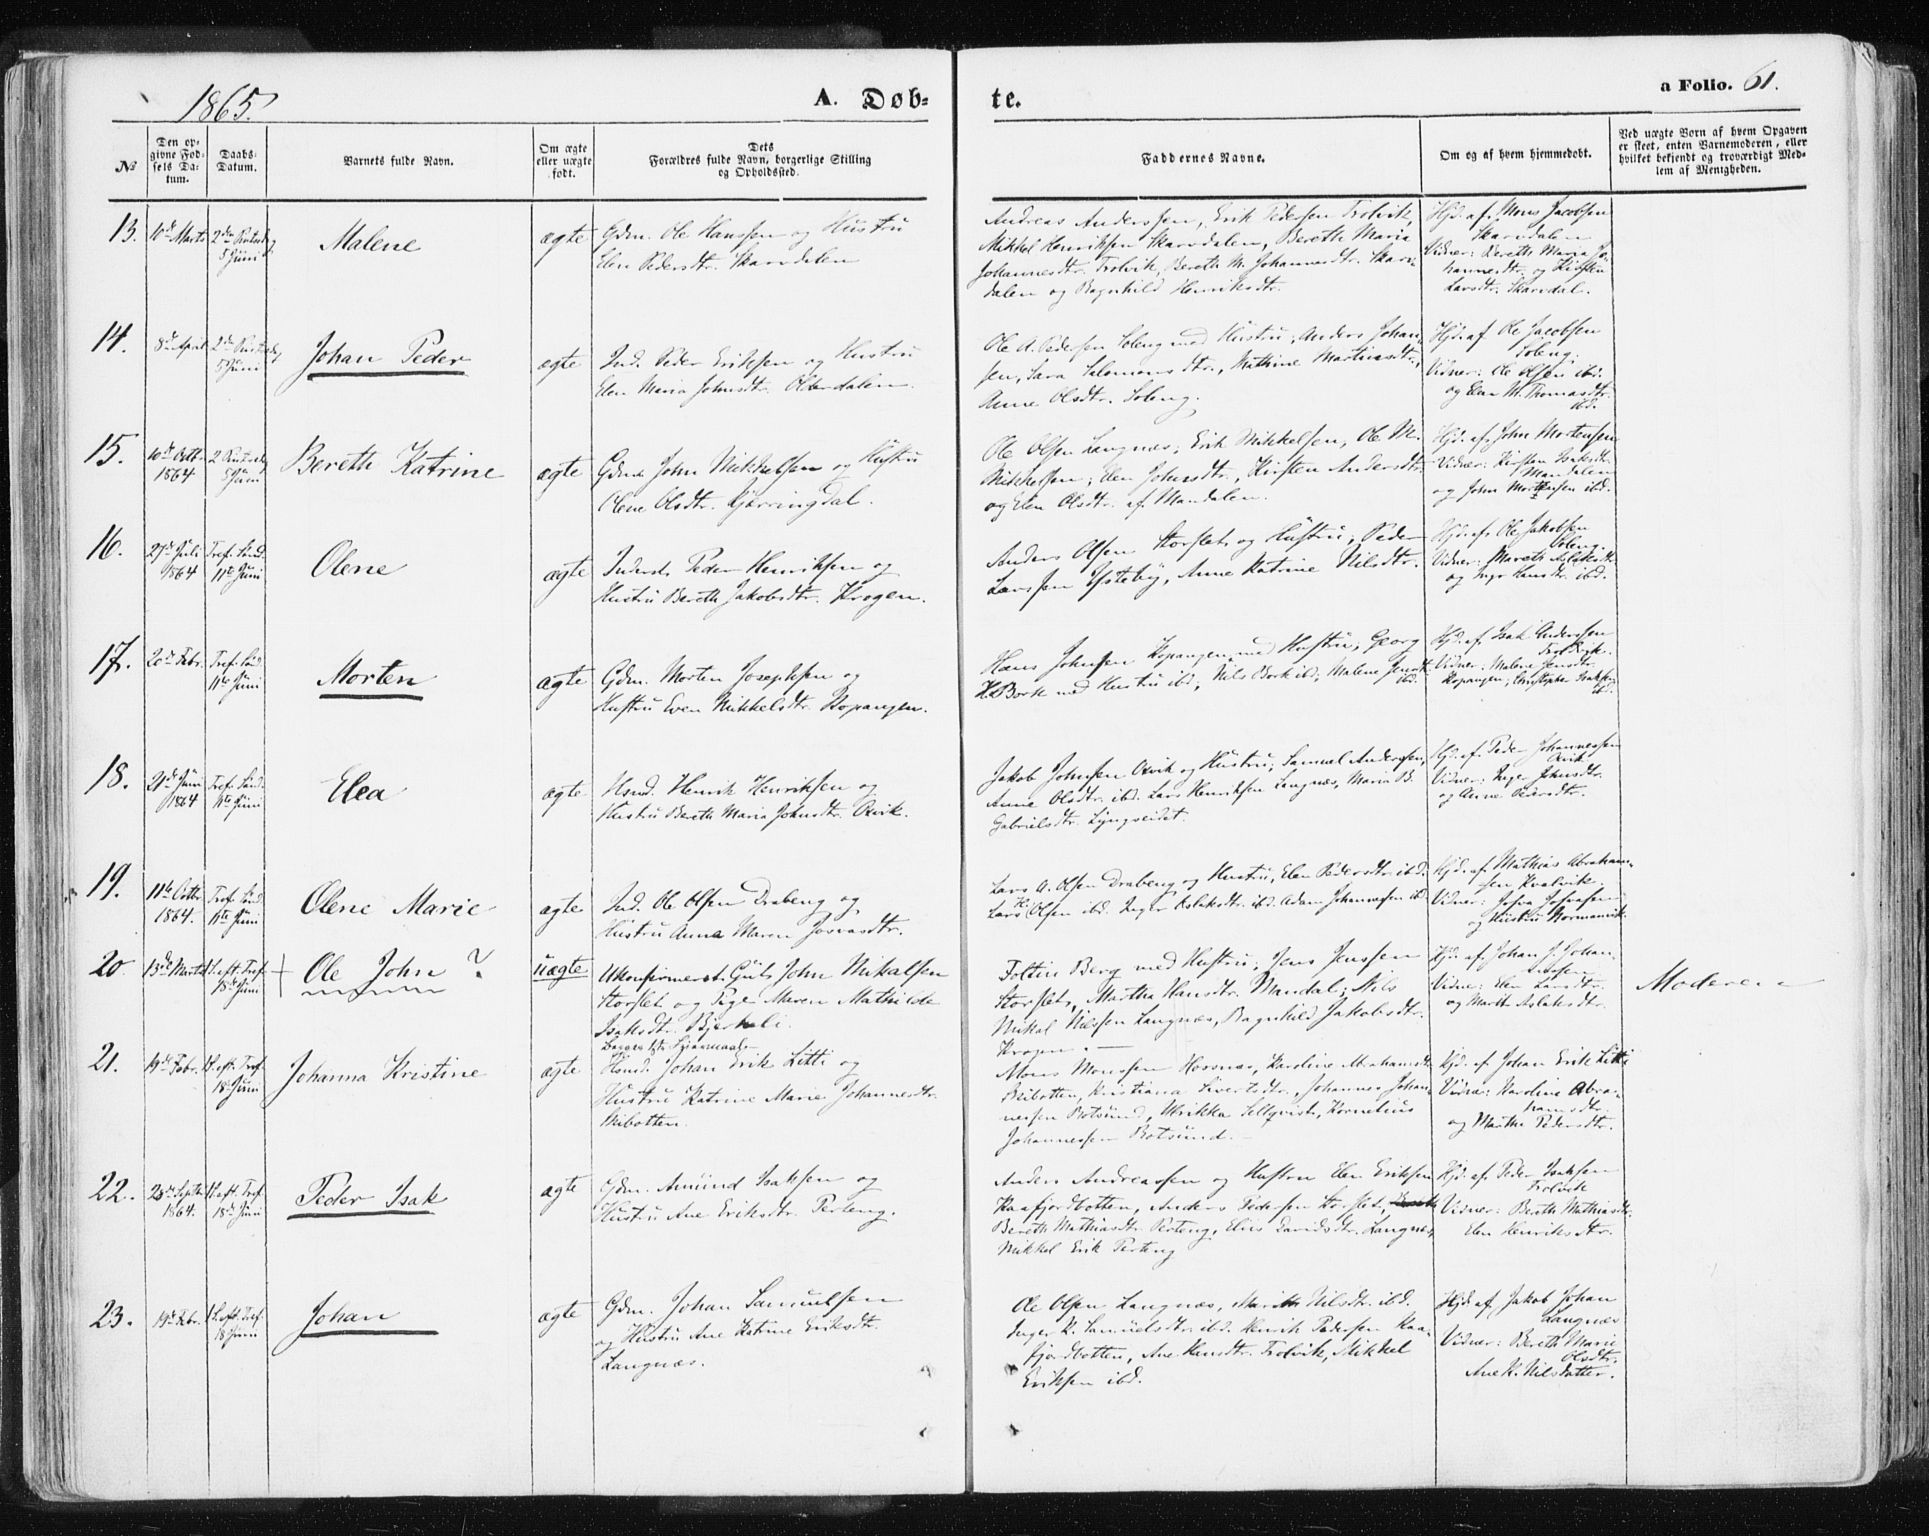 1865.
A. Døb-
te.
a Folio. 61.
No
Den op-
givne Fød-
sels Da-
tum.
Daabs-
Datum.
Barnets fulde Navn.
Om ægte
eller uægte
født.
Dets
Forældres fulde Navn, borgerlige Stilling
og Opholdssted.
Faddernes Navne.
Om og af hvem hjemmedøbt.
Ved uægte Børn af hvem Opgaven
er skeet, enten Barnemoderen, eller
hvilket bekjendt og troværdigt Med-
lem af Menigheden.
13.
10de Marts
2den Pintsedag
5 Juni
Malene
ægte
Gdm. Ole Hanssen og Hustru
Elen Pedersdtr. Skardalen
Andreas Anderssen, Erik Pedersen Trolvik,
Mikkel Henriksen Skarvdalen, Bereth Maria
Johannesdtr. Trolvik, Bereth M. Johannesdtr. Skarv-
dalen og Ragnhild Henriksdtr.
Hjd. af Mons Jacobsen
Skarvdalen
Vidner: Bereth Maria Jo-
hannesdtr. og Kirsten
Larsdtr. Skarvdal.
14.
8de April
2den Pintsedag
5 Juni
Johan Peder
ægte
Ind. Peder Eriksen og Hustru
Elen Maria Johnsdtr. Olderdalen
Ole A. Pedersen Soleng med Hustru, Anders Johan-
sen, Sara Salomonsdtr., Mathine Marthinsdtr.,
Anne Olsdtr. Soleng.
Hjd. af Ole Jacobsen
Soleng.
Vidner: Ole Olsen ibd.
og Elen M. Thomasdtr.
ibd.
15.
10de Octb.
1864
2 Pintsedag
5 Juni
Bereth Katrine
ægte
Gdmd. John Mikkelsen og Hustru
Olene Olsdtr. Kjerringdal.
Ole Olsen Langnæs, Erik Mikkelsen, Ole M.
Mikkelsen, Elen Johnsdtr., Kirsten Andersdtr.
og Elen Olsdtr. af Mandalen.
Hjd. af John Mortensen
Vidner: Kirsten Isaksdtr.
Mandalen
og John Mortensen ibd.
16.
27de Juli
1864
Tref. Sønd.
11te Juni
Olene
ægte
Inderst. Peder Henriksen og
Hustru Bereth Jakobsdtr. Krogen.
Anders Olsen Storslet og Hustru, Peder
Larssen Ysteby, Anne Katrine Nilsdtr.
Hjd. af Ole Jakobsen
Soleng.
Vidner: Mareth Aslaksdtr.
og Inger Hansdtr. ibd.
17.
20de Febr.
Tref. Sønd.
11te Juni
Morten
ægte
Gdm. Morten Josephsen og
Hustru Even Mikkelsdtr. Kopangen.
Hans Johnsen Kopangen med Hustru, Georg
H. Bork med Hustru ibd., Nils Bork ibd., Malene Jensdtr.
ibd.
Hjd. af Isak Anderssen
Vidner: Malene Jensdtr.
Kopangen, Christopher Isaksen
ibd.
18.
21de Juni
1864
Tref. Sønd.
11te Juni
Elea
ægte
Hsmd. Henrik Henriksen og
Hustru Bereth Maria Johnsdtr. Oxvik.
Jakob Johnsen Oxvik og Hustru, Samuel Anderssen,
Anne Olsdtr. ibd. Lars Henriksen Langnæs, Maria B.
Gabrielsdtr. Lyngseidet.
Hjd. af Peder Johannessen
Oxvik
Vidner: Inger Johnsdtr.
og Anne Pedersdtr.
19.
11te Octbr.
1864.
Tref. Sønd.
11te Juni
Olene Marie
ægte
Ind. Ole Olsen Drabeng og
Hustru Anna Maren Josvasdtr.
Lars A. Olsen Drabeng og Hustru, Elen Pedersdtr. ibd.
Lars H. Olsen ibd. Inger Aslaksdtr. ibd. Adam Johannesen ibd.
Hjd. af Mathias Abraham-
sen Kvalvik
Vidner: Josva Josvasen
og Hustru Normanvik
20
13de Marts
1 S. eft. Tref.
18de Juni
+ Ole John ?
uægte
Ukonfirmeret Gut John Mikalsen
Storslet og Pige Maren Mathilde
Isaksdtr. Bjerkeli.
Begges 1ste Leiermaal
Foltin Berg med Hustru, Jens Jenssen
Storslet, Martha Hansdtr. Mandal, Nils
Mikal Nilssen Langnæs, Ragnhild Jakobsdtr.
Krogen. —
Hjd. af Johan J. Johan-
nessen
Vidner: Elen Larsdtr.
og Marith Aslaksdtr.
Moderen
21.
19de Febr.
1 S. eft. Tref.
18 Juni
Johanna Kristine
ægte
Hsmd. Johan Erik Litti og
Hustru Katrine Marie Johannesdtr.
Skibotten.
Mons Monssen Horsnæs, Karoline Abrahamsdtr.
Skibotten, Kristiana Sivertsdtr., Johannes Johan-
nessen Rotsund, Ulrikka Sellqvist, Kornelius
Johannessen Rotsund. —
Hjd. af Johan Erik Litti
Vidner: Karoline Abra-
hamsdtr.
og Marthe Pedersdtr.
22.
28de Septbr.
1864.
1 S. eft. Tref.
18de Juni
Peder Isak
ægte
Gdm. Amund Isaksen og
Hustru Ane Eriksdtr. Perteng.
Anders Andreassen og Hustru Elen Eriksen
Kaafjordbotten, Anders Pedersen Storslet,
Bereth Mathiasdtr. Perteng, Elius Davidsdtr. Langnæs,
Mikkel Erik Perteng
Hjd. af Peder Isaksen
Trolvik
Vidner: Bereth Mathiasdtr.
Elen Henriksdtr.
23.
19de Febr.
1 S. eft. Tref.
18 Juni
Johan
ægte
Gdm. Johan Samuelsen
og Hustru Ane Katrine Eriksdtr.
Langnæs.
Ole Olsen Langnæs, Marith Nilsdtr. ibd.
Inger K. Samuelsdtr. ibd. Henrik Pedersen Kaa-
fjordbotten, Ane Hansdtr. Trolvik, Mikkel
Eriksen ibd.
Hjd. af Jakob Johan
Langnæs
Vidner: Bereth Marie
Olsdtr.
Ane K. Nilsdatter.